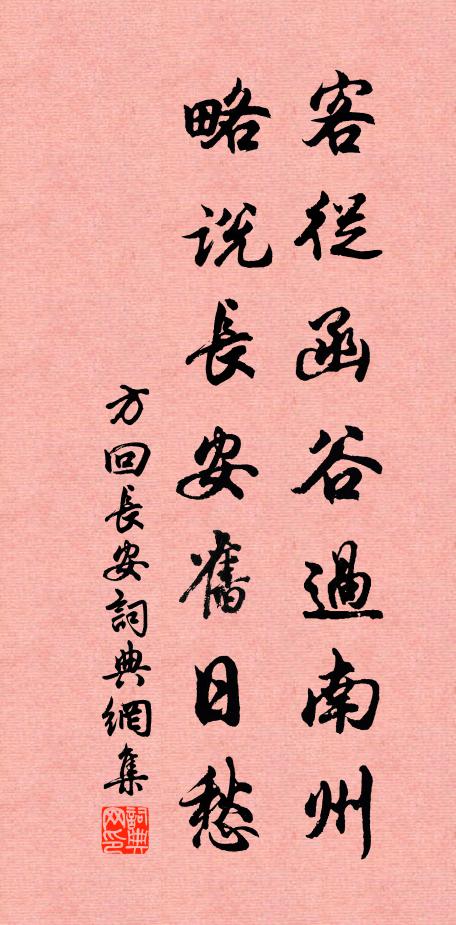 客從函谷過南州
略說長安舊日愁
方回長安詞典網集
詞典网印